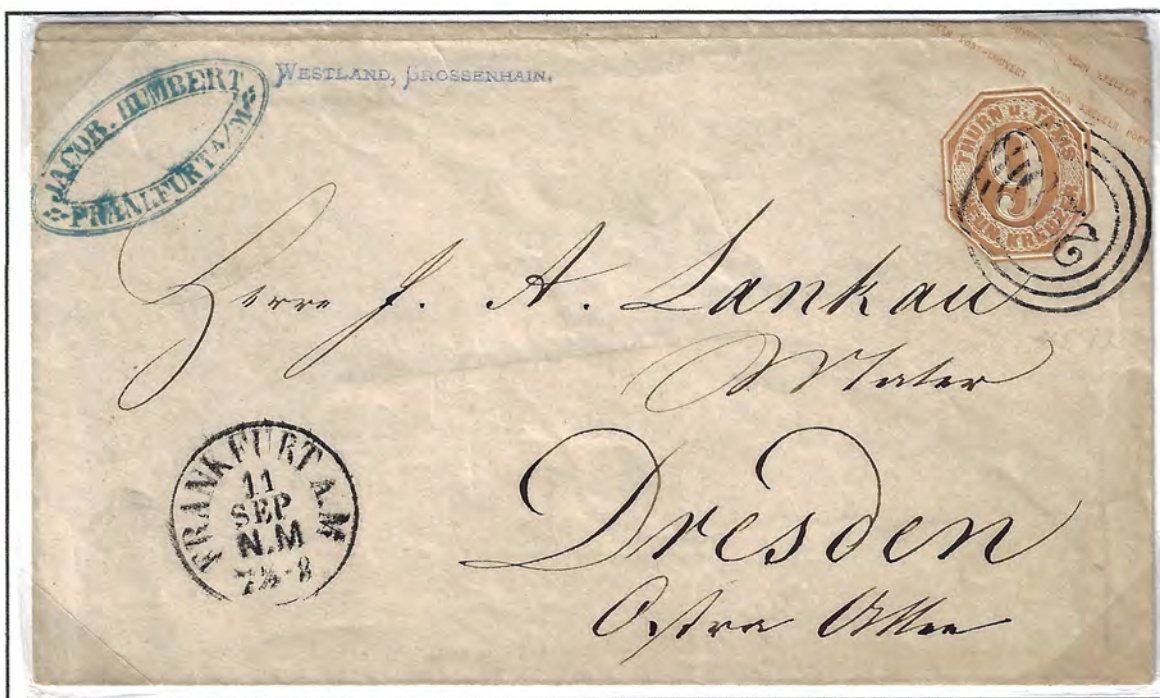 JACOB. HUMBERT
FRANKFURT A/M
WESTLAND, GROSSENHAIN.
NEUN KREUZER
THURN U. TAXIS
9
NEUN KREUZER
Herrn J. A. Lankau
Maler
Dresden
Ostra Allee
FRANKFURT A.M
11
SEP
N.M
7½-8